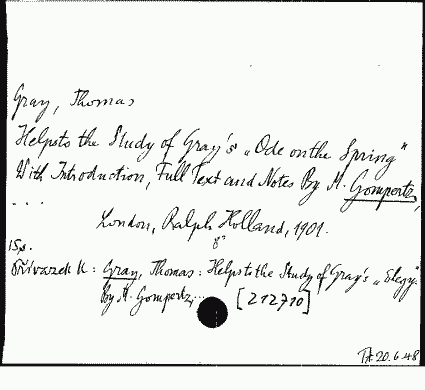 Gray, Thomas
Helps to the Study of Gray's „Ode on the Spring"
With Introduction, Full Text and Notes By M. Gompertz,
...
London, Ralph Holland, 1901.
8°
15s.
Přívazek k: Gray, Thomas: Helps to the Study of Gray's „Elegy".
By M. Gompertz,...
[212710]
20.6.48